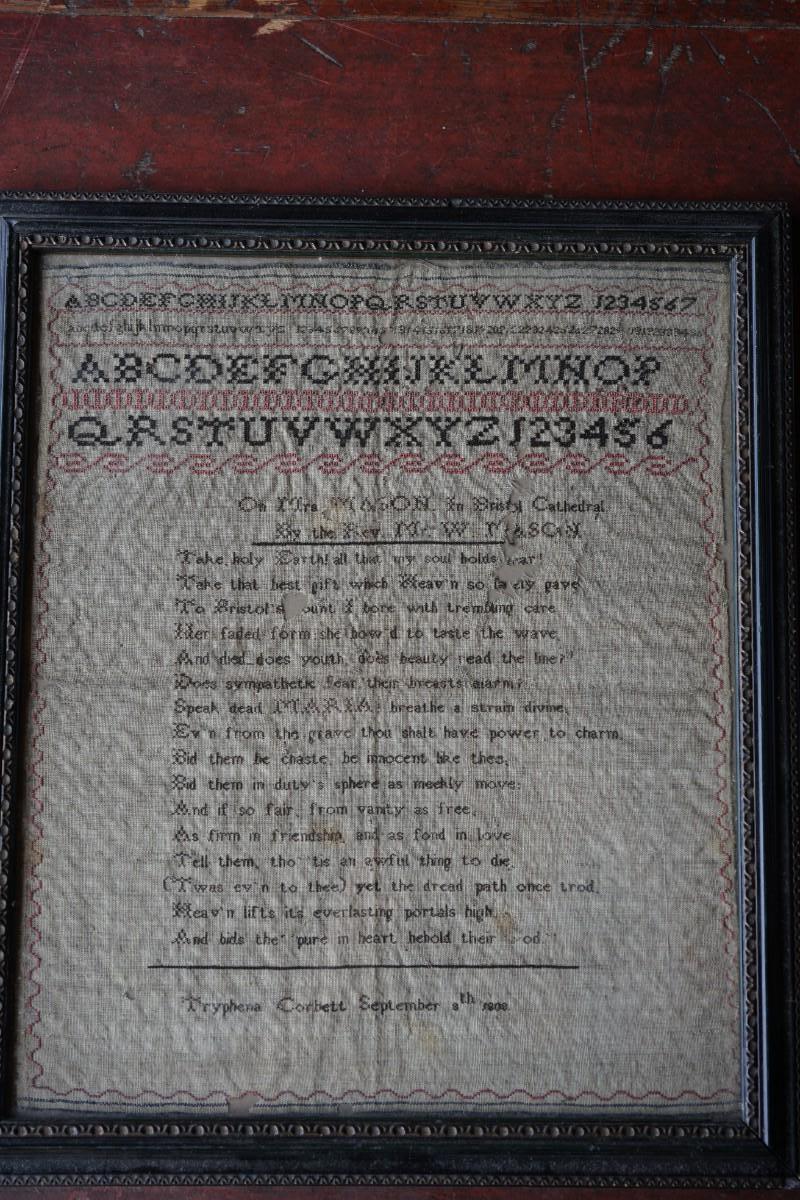 ABCDEFGHIJKLMNOPQRSTUVWXYZ 1234567
abcdefghijklmnopqrstuvwxyz
ABCDEFGHIJKLMNOP
QRSTUVWXYZ123456
On Mrs MASON In Bristol Cathedral
By the Rev Mr W MASON
Take holy Earth! all that my soul holds ear!
Take that best gift which Heav'n so gave
To Bristol's ount I bore with trembling care
Her faded form she bow'd to taste the wave
And died does youth, does beauty read the line?
Does sympathetic fear their breasts alarm?
Speak dead MARIA! breathe a strain divine,
Ev'n from the grave thou shalt have power to charm.
Bid them be chaste, be innocent like thee,
Bid them in duty's sphere as meekly move;
And if so fair, from vanity as free,
As firm in friendship, and as fond in love
Tell them, tho' 'tis an awful thing to die,
('Twas ev'n to thee) yet the dread path once trod,
Heav'n lifts its everlasting portals high,
And bids the "pure in heart behold their od."
Tryphena Corbett September 8th